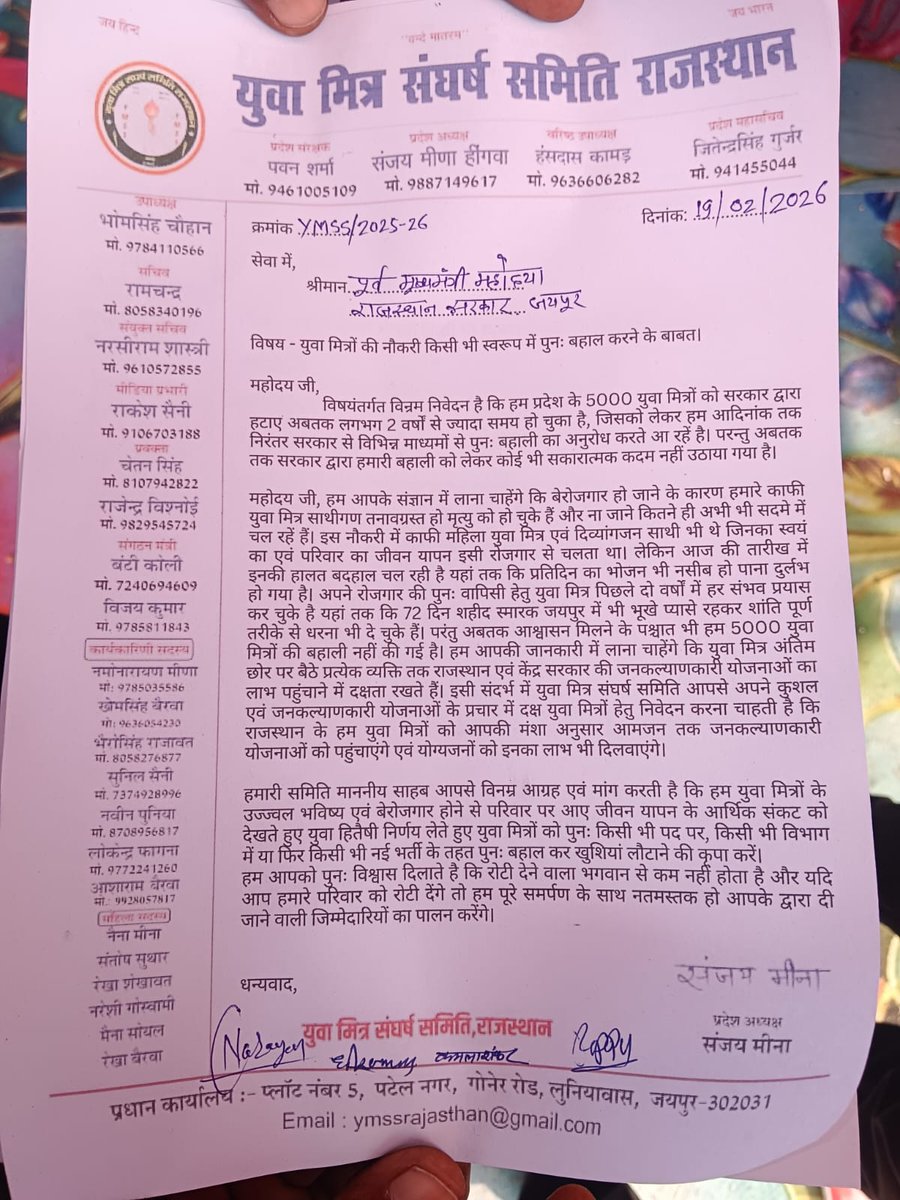 जय हिन्द
"वन्दे मातरम"
जय भारत
युवा मित्र संघर्ष समिति राजस्थान
प्रदेश संरक्षक
पवन शर्मा
मो. 9461005109
प्रदेश अध्यक्ष
संजय मीणा हींगवा
मो. 9887149617
वरिष्ठ उपाध्यक्ष
हंसदास कामड़
मो. 9636606282
प्रदेश महासचिव
जितेन्द्रसिंह गुर्जर
मो. 941455044
उपाध्यक्ष
भोमसिंह चौहान
मो. 9784110566
सचिव
रामचन्द्र
मो. 8058340196
संयुक्त सचिव
नरसीराम शास्त्री
मो. 9610572855
मीडिया प्रभारी
राकेश सैनी
मो. 9106703188
प्रवक्ता
चेतन सिंह
मो. 8107942822
राजेन्द्र विश्नोई
मो. 9829545724
संगठन मंत्री
बंटी कोली
मो. 7240694609
विजय कुमार
मो. 9785811843
कार्यकारिणी सदस्य
नमोनारायण मीणा
मो: 9785035586
खेमसिंह बैरवा
मो: 9636054230
भैरोसिंह राजावत
मो. 8058276877
सुनिल सैनी
मो. 7374928996
नवीन पुनिया
मो. 8708956817
लोकेन्द्र फागना
मो. 9772241260
आशाराम बैरवा
मो.: 9928057817
महिला सदस्य
नैना मीना
संतोष सुथार
रेखा शेखावत
नरेशी गोस्वामी
मैना सोयल
रेखा बैरवा
क्रमांक YMSS/2025-26
दिनांक: 19/02/2026
सेवा में,
श्रीमान पूर्व मुख्यमंत्री महोदय
राजस्थान सरकार जयपुर
विषय - युवा मित्रों की नौकरी किसी भी स्वरूप में पुनः बहाल करने के बाबत।
महोदय जी,
विषयंतर्गत विनम्र निवेदन है कि हम प्रदेश के 5000 युवा मित्रों को सरकार द्वारा
हटाए अबतक लगभग 2 वर्षों से ज्यादा समय हो चुका है, जिसको लेकर हम आदिनांक तक
निरंतर सरकार से विभिन्न माध्यमों से पुनः बहाली का अनुरोध करते आ रहें है। परन्तु अबतक
तक सरकार द्वारा हमारी बहाली को लेकर कोई भी सकारात्मक कदम नहीं उठाया गया है।
महोदय जी, हम आपके संज्ञान में लाना चाहेंगे कि बेरोजगार हो जाने के कारण हमारे काफी
युवा मित्र साथीगण तनावग्रस्त हो मृत्यु को हो चुके हैं और ना जाने कितने ही अभी भी सदमे में
चल रहें हैं। इस नौकरी में काफी महिला युवा मित्र एवं दिव्यांगजन साथी भी थे जिनका स्वयं
का एवं परिवार का जीवन यापन इसी रोजगार से चलता था। लेकिन आज की तारीख में
इनकी हालत बदहाल चल रही है यहां तक कि प्रतिदिन का भोजन भी नसीब हो पाना दुर्लभ
हो गया है। अपने रोजगार की पुनः वापिसी हेतु युवा मित्र पिछले दो वर्षों में हर संभव प्रयास
कर चुके है यहां तक कि 72 दिन शहीद स्मारक जयपुर में भी भूखे प्यासे रहकर शांति पूर्ण
तरीके से धरना भी दे चुके हैं। परंतु अबतक आश्वासन मिलने के पश्चात भी हम 5000 युवा
मित्रों की बहाली नहीं की गई है। हम आपकी जानकारी में लाना चाहेंगे कि युवा मित्र अंतिम
छोर पर बैठे प्रत्येक व्यक्ति तक राजस्थान एवं केंद्र सरकार की जनकल्याणकारी योजनाओं का
लाभ पहुंचाने में दक्षता रखते हैं। इसी संदर्भ में युवा मित्र संघर्ष समिति आपसे अपने कुशल
एवं जनकल्याणकारी योजनाओं के प्रचार में दक्ष युवा मित्रों हेतु निवेदन करना चाहती है कि
राजस्थान के हम युवा मित्रों को आपकी मंशा अनुसार आमजन तक जनकल्याणकारी
योजनाओं को पहुंचाएंगे एवं योग्यजनों को इनका लाभ भी दिलवाएंगे।
हमारी समिति माननीय साहब आपसे विनम्र आग्रह एवं मांग करती है कि हम युवा मित्रों के
उज्ज्वल भविष्य एवं बेरोजगार होने से परिवार पर आए जीवन यापन के आर्थिक संकट को
देखते हुए युवा हितैषी निर्णय लेते हुए युवा मित्रों को पुनः किसी भी पद पर, किसी भी विभाग
में या फिर किसी भी नई भर्ती के तहत पुनः बहाल कर खुशियां लौटाने की कृपा करें।
हम आपको पुनः विश्वास दिलाते है कि रोटी देने वाला भगवान से कम नहीं होता है और यदि
आप हमारे परिवार को रोटी देंगे तो हम पूरे समर्पण के साथ नतमस्तक हो आपके द्वारा दी
जाने वाली जिम्मेदारियों का पालन करेंगे।
धन्यवाद,
संजय मीना
प्रदेश अध्यक्ष
संजय मीना
युवा मित्र संघर्ष समिति,राजस्थान
Narayan
कमलाशंकर
प्रधान कार्यालय :- प्लॉट नंबर 5, पटेल नगर, गोनेर रोड, लुनियावास, जयपुर-302031
Email : ymssrajasthan@gmail.com